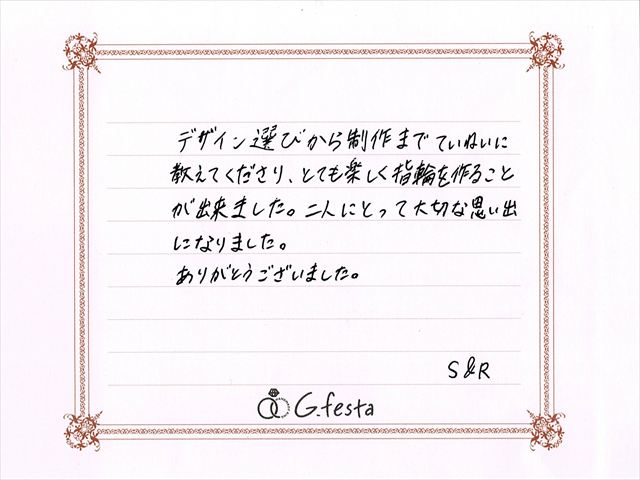 デザイン選びから制作までていねいに
教えてくださり、とても楽しく指輪を作ること
が出来ました。二人にとって大切な思い出
になりました。
ありがとうございました。
S&R
G.festa